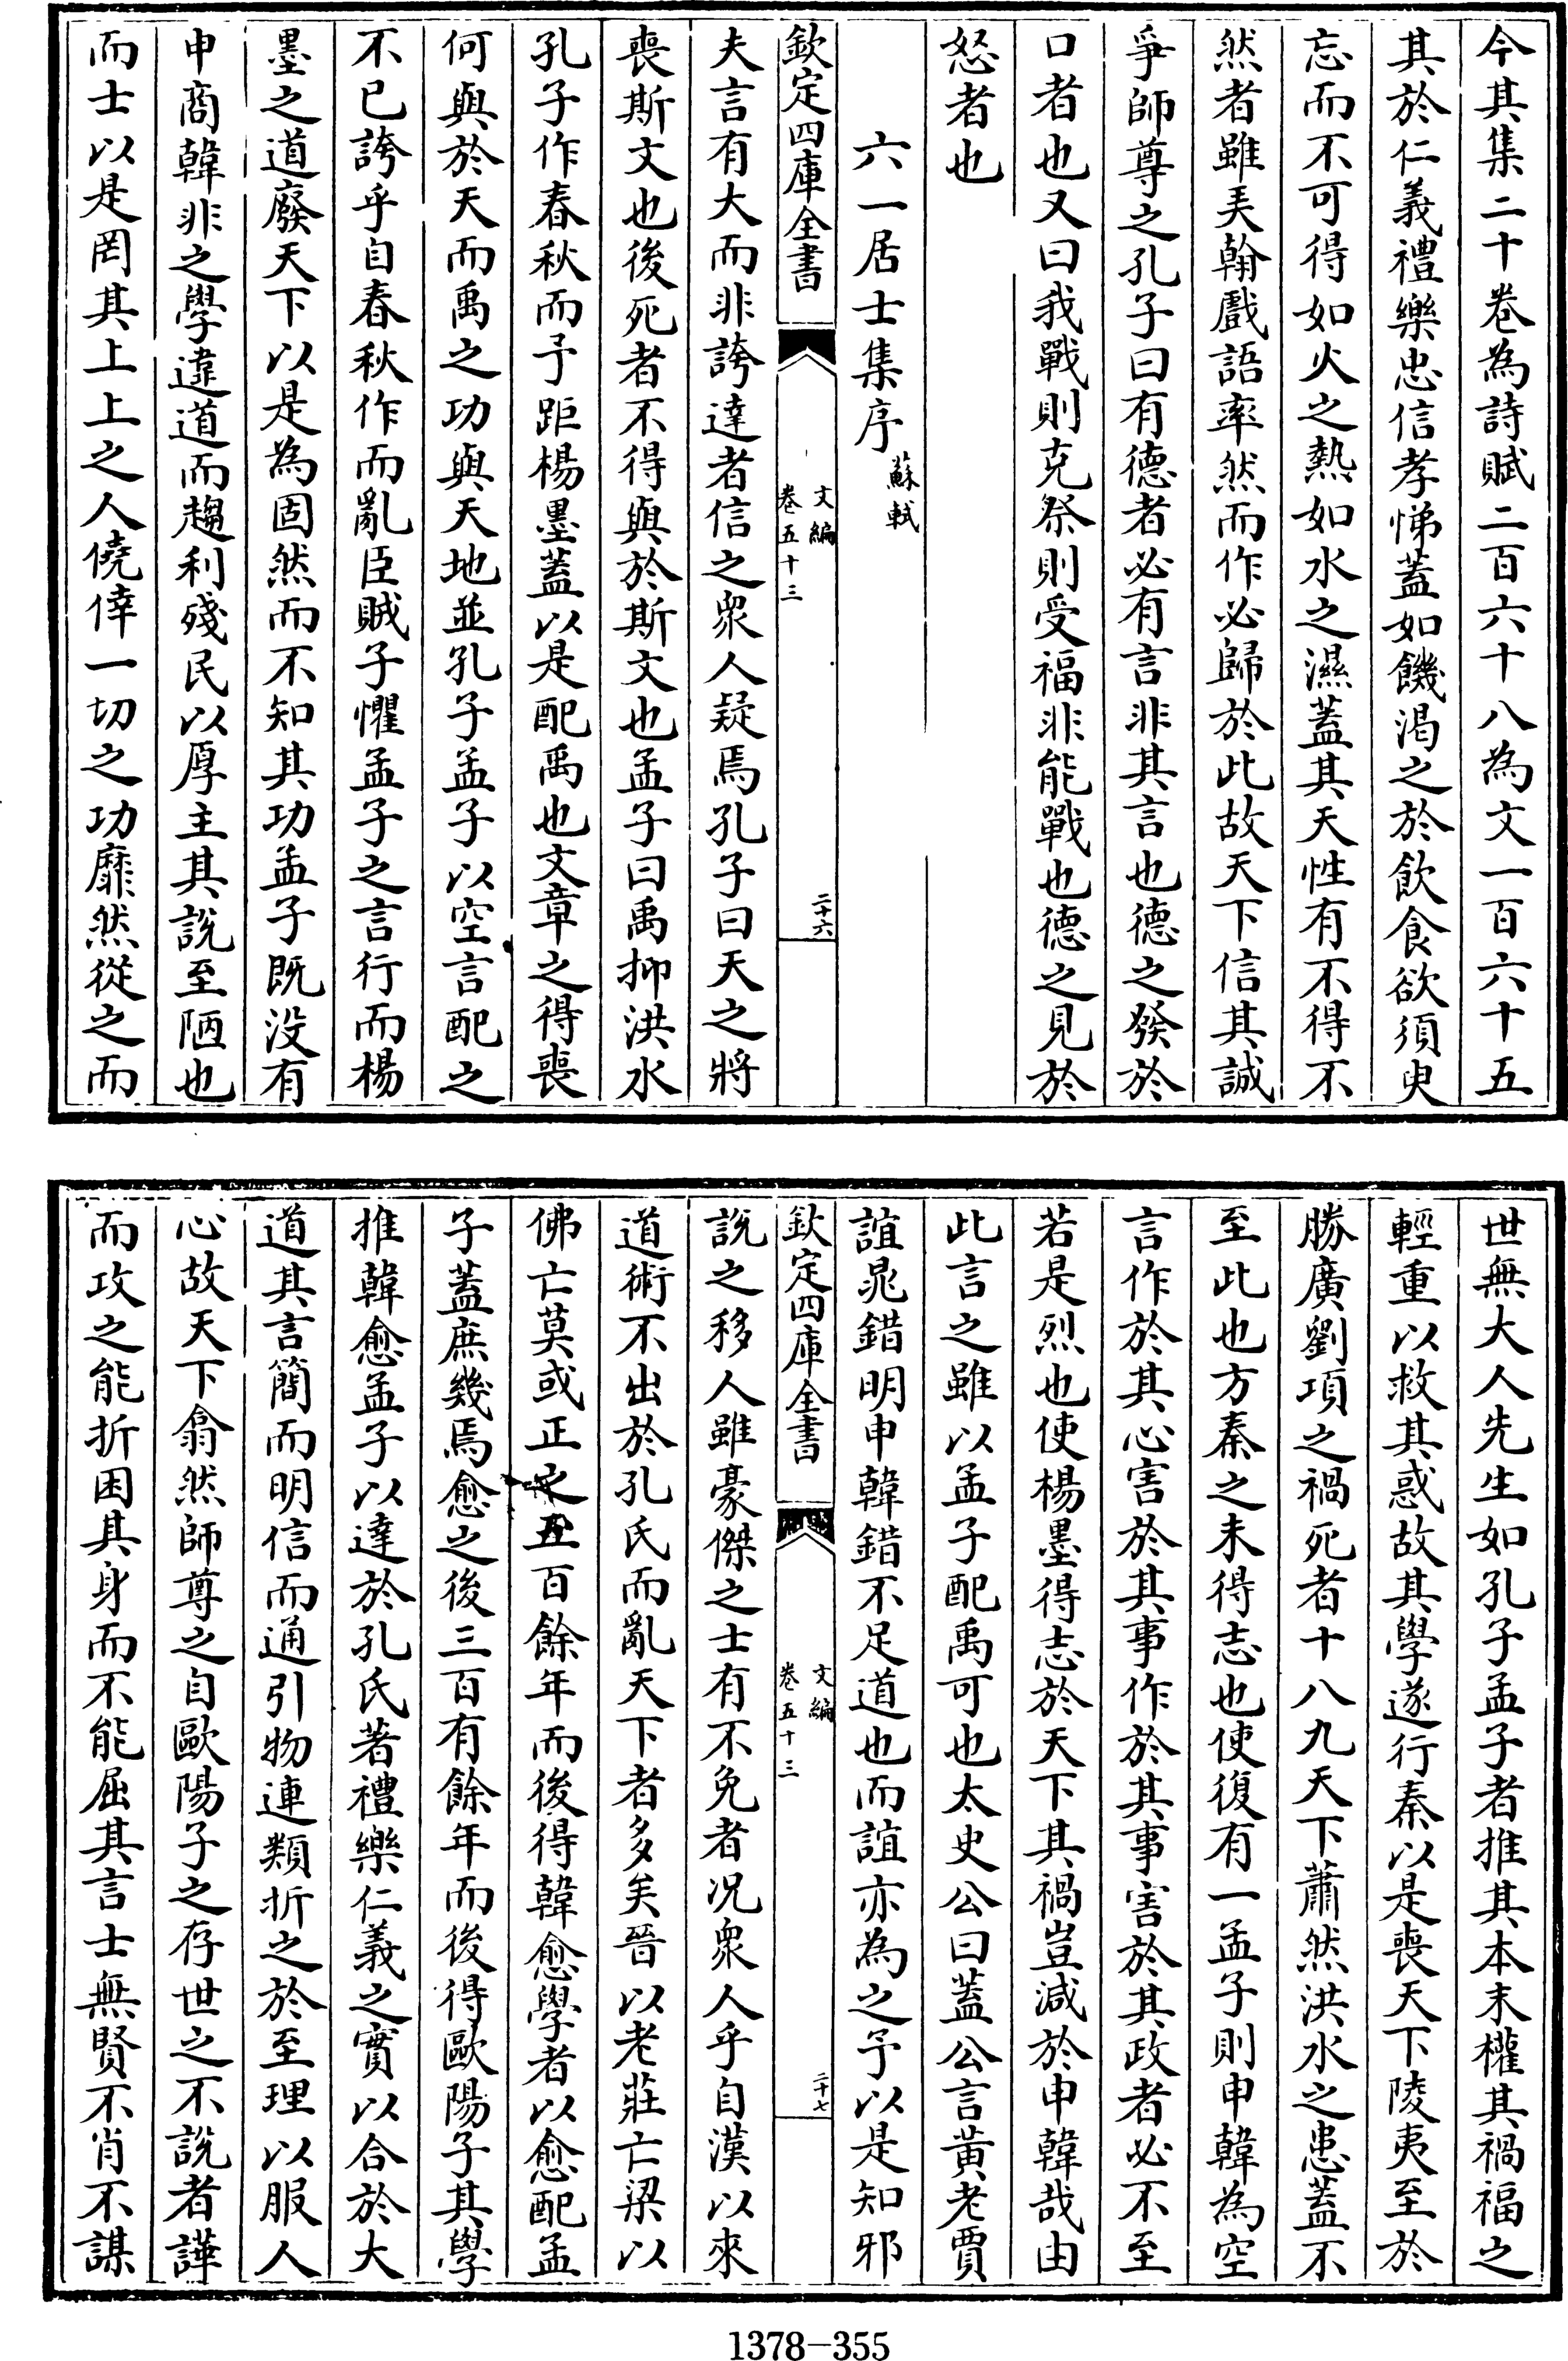 今其集二十卷為詩賦二百六十八為文一百六十五
其於仁義禮樂忠信孝悌蓋如饑渴之於飲食欲須臾
忘而不可得如火之熱如水之濕蓋其天性有不得不
然者雖美翰戲語率然而作必歸於此故天下信其誠
爭師尊之孔子曰有德者必有言非其言也德之發於
口者也又曰我戰則克祭則受福非能戰也德之見於
怒者也
六一居士集序 蘇軾
欽定四庫全書 文編 卷五十三 二十六
夫言有大而非誇達者信之衆人疑焉孔子曰天之將
喪斯文也後死者不得與於斯文也孟子曰禹抑洪水
孔子作春秋而予距楊墨蓋以是配禹也文章之得喪
何與於天而禹之功與天地並孔子孟子以空言配之
不已誇乎自春秋作而亂臣賊子懼孟子之言行而楊
墨之道廢天下以是為固然而不知其功孟子既沒有
申商韓非之學違道而趨利殘民以厚主其說至陋也
而士以是罔其上上之人僥倖一切之功靡然從之而
世無大人先生如孔子孟子者推其本末權其禍福之
輕重以救其惑故其學遂行秦以是喪天下陵夷至於
勝廣劉項之禍死者十八九天下蕭然洪水之患蓋不
至此也方秦之未得志也使復有一孟子則申韓為空
言作於其心害於其事作於其事害於其政者必不至
若是烈也使楊墨得志於天下其禍豈減於申韓哉由
此言之雖以孟子配禹可也太史公曰蓋公言黃老賈
誼鼂錯明申韓錯不足道也而誼亦為之予以是知邪
欽定四庫全書 文編 卷五十三 二十七
說之移人雖豪傑之士有不免者况衆人乎自漢以來
道術不出於孔氏而亂天下者多矣晉以老莊亡梁以
佛亡莫或正之五百餘年而後得韓愈學者以愈配孟
子蓋庶幾焉愈之後三百有餘年而後得歐陽子其學
推韓愈孟子以達於孔氏著禮樂仁義之實以合於大
道其言簡而明信而通引物連類折之於至理以服人
心故天下翕然師尊之自歐陽子之存世之不說者譁
而攻之能折困其身而不能屈其言士無賢不肖不謀
1378-355